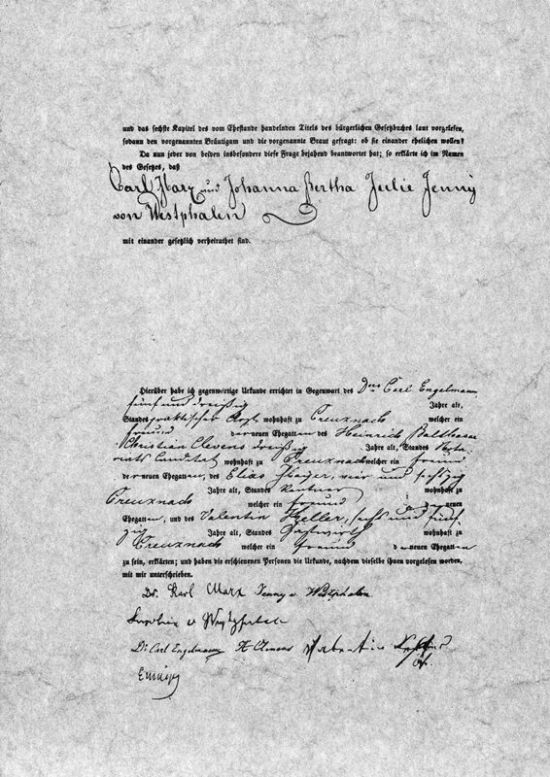 und das sechste Kapitel des vom Ehestande handelnden Titels des bürgerlichen Gesetzbuches laut vorgelesen,
sodann den vorgenannten Bräutigam und die vorgenannte Braut gefragt: ob sie einander ehelichen wollen?
Da nun jeder von beiden insbesondere diese Frage bejahend beantwortet hat; so erkläre ich im Namen
des Gesetzes, daß
Carl Marx und Johanna Bertha Julie Jenny
von Westphalen
mit einander gesetzlich verheirathet sind.
Hierüber habe ich gegenwärtige Urkunde errichtet in Gegenwart des Drs Carl Engelmann
fünf und dreißig Jahre alt,
Standes praktischer Arzt wohnhaft zu Creuznach welcher ein
Freund der neuen Ehegatten des Heinrich Balthasar
Christian Clevens dreißig Jahre alt, Standes Nota-
riats Candidat wohnhaft zu Creuznach welcher ein Freund
der neuen Ehegatten, des Elias Mayer, vier und sechzig
Jahre alt, Standes Rentner wohnhaft zu
Creuznach welcher ein Freund der neuen
Ehegatten, und des Valentin Keller, sechs und fünf-
zig Jahre alt, Standes Gastwirth wohnhaft zu
Creuznach welcher ein Freund der neuen Ehegatten
zu sein, erklärten; und haben die erschienenen Personen die Urkunde, nachdem dieselbe ihnen vorgelesen worden,
mit mir unterschrieben.
Dr. Karl Marx Jenny v. Westphalen
v Westphalen
Dr Carl Engelmann H Clevens Valentin